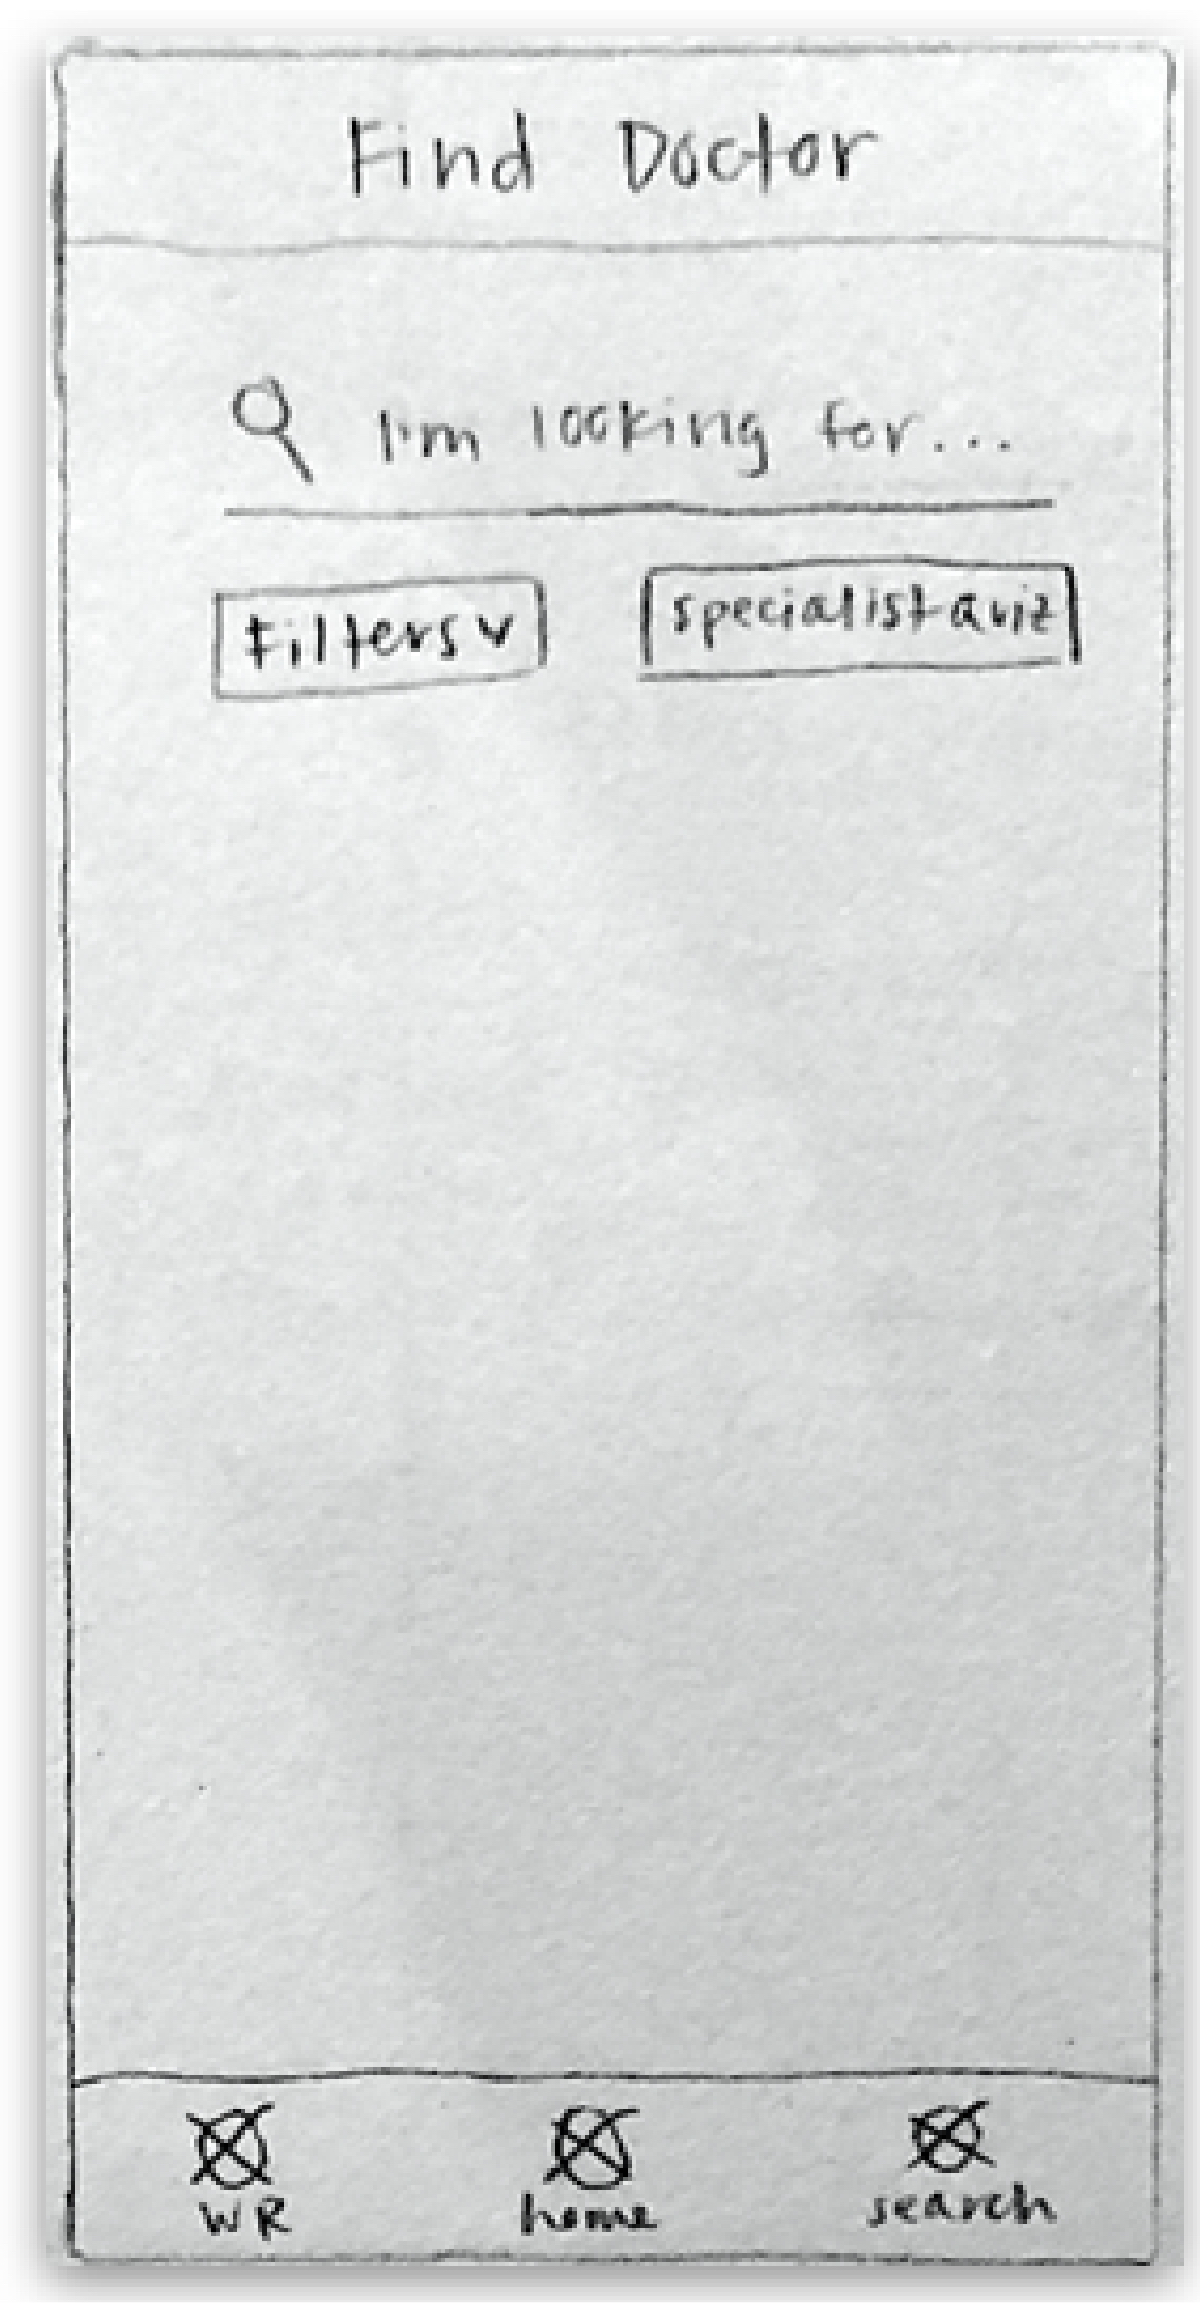 Find Doctor
I'm looking for...
Filters v specialist quiz
WR home search